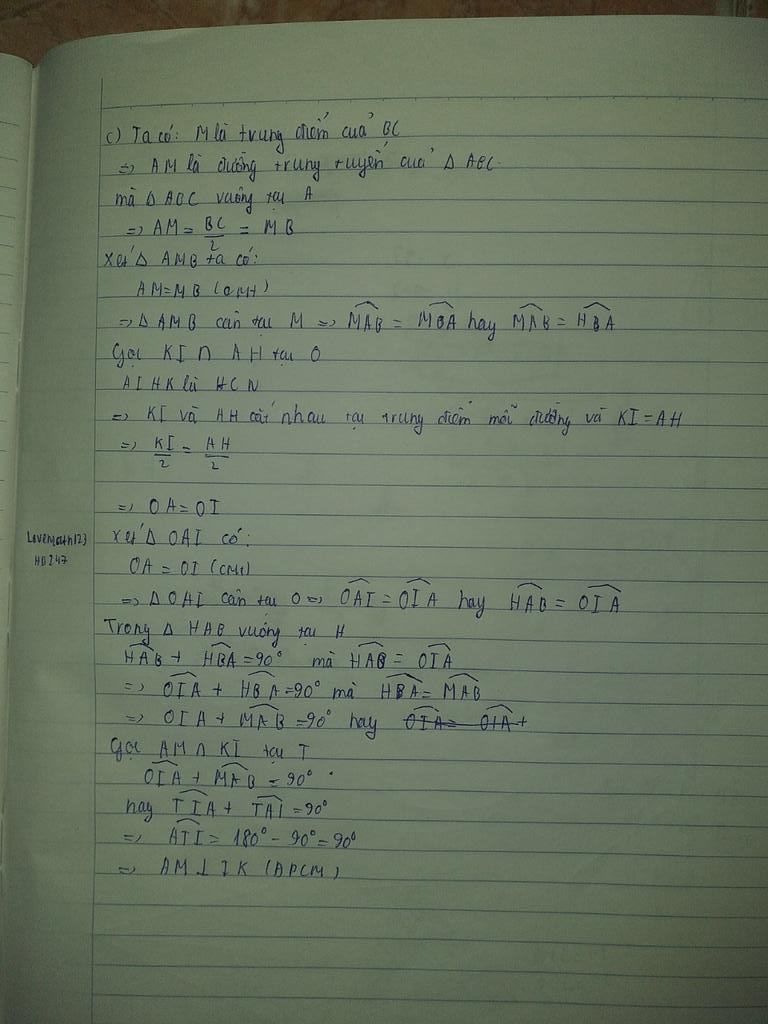 c) Ta có: M là trung điểm của BC
=> AM là đường trung tuyến của Δ ABC.
mà Δ ABC vuông tại A
=> AM = BC/2 = MB
Xét Δ AMB ta có:
AM=MB (CMT)
=> Δ AMB cân tại M => MAB = MBA hay MAB = HBA
Gọi KI ∩ AH tại O
AIHK là HCN
=> KI và AH cắt nhau tại trung điểm mỗi đường và KI = AH
=> KI/2 = AH/2
=> OA = OI
Lovemath123
HDI47
Xét Δ OAI có:
OA = OI (CMT)
=> Δ OAI cân tại O => OAI = OIA hay HAB = OIA
Trong Δ HAB vuông tại H
HAB + HBA = 90° mà HAB = OIA
=> OIA + HBA = 90° mà HBA = MAB
=> OIA + MAB = 90° hay OIA = OIA +
Gọi AM ∩ KI tại T
OIA + MAB = 90°
hay TIA + TAI = 90°
=> ATI = 180° - 90° = 90°
=> AM ⊥ IK (ĐPCM)